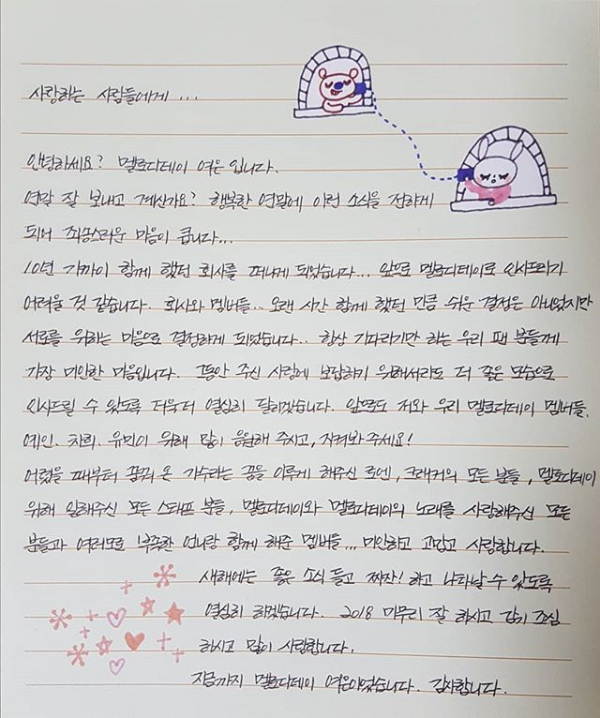 사랑하는 사람들에게 ...
안녕하세요? 멜로디데이 여은 입니다.
연말 잘 보내고 계신가요? 행복한 연말에 이런 소식을 전하게
되어 죄송스러운 마음이 큽니다...
10년 가까이 함께 했던 회사를 떠나게 되었습니다... 앞으로 멜로디데이로 인사드리기
어려울 것 같습니다. 회사와 멤버들.. 오랜 시간 함께 했던 만큼 쉬운 결정은 아니었지만
서로를 위하는 마음으로 결정하게 되었습니다.. 항상 기다리기만 하는 우리 팬 분들께
가장 미안한 마음입니다. 그동안 주신 사랑에 보답하기 위해서라도 더 좋은 모습으로
인사드릴 수 있도록 더욱더 열심히 달리겠습니다. 앞으로도 저와 우리 멜로디데이 멤버들,
예인, 차희, 유민이 위해 많이 응원해 주시고, 지켜봐 주세요!
어렸을 때부터 꿈꿔 온 가수라는 꿈을 이루게 해주신 로엔, 크래커의 모든 분들, 멜로디데이
위해 일해주신 모든 스태프 분들, 멜로디데이와 멜로디데이의 노래를 사랑해주신 모든
분들과 여러모로 부족한 언니랑 함께 해준 멤버들... 미안하고 고맙고 사랑합니다.
새해에는 좋은 소식 들고 짜잔! 하고 나타날 수 있도록
열심히 하겠습니다. 2018 마무리 잘 하시고 감기 조심
하시고 많이 사랑합니다.
지금까지 멜로디데이 여은이었습니다. 감사합니다.